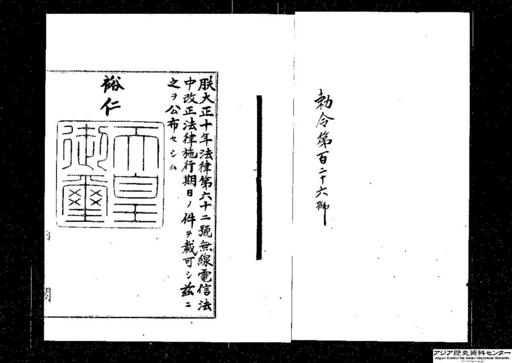 勅令第百二十六號
朕大正十年法律第六十二號無線電信法
中改正法律施行期日ノ件ヲ裁可シ茲ニ
之ヲ公布セシム
裕仁
天皇
御璽
アジア歴史資料センター
Japan Center for Asian Historical Records